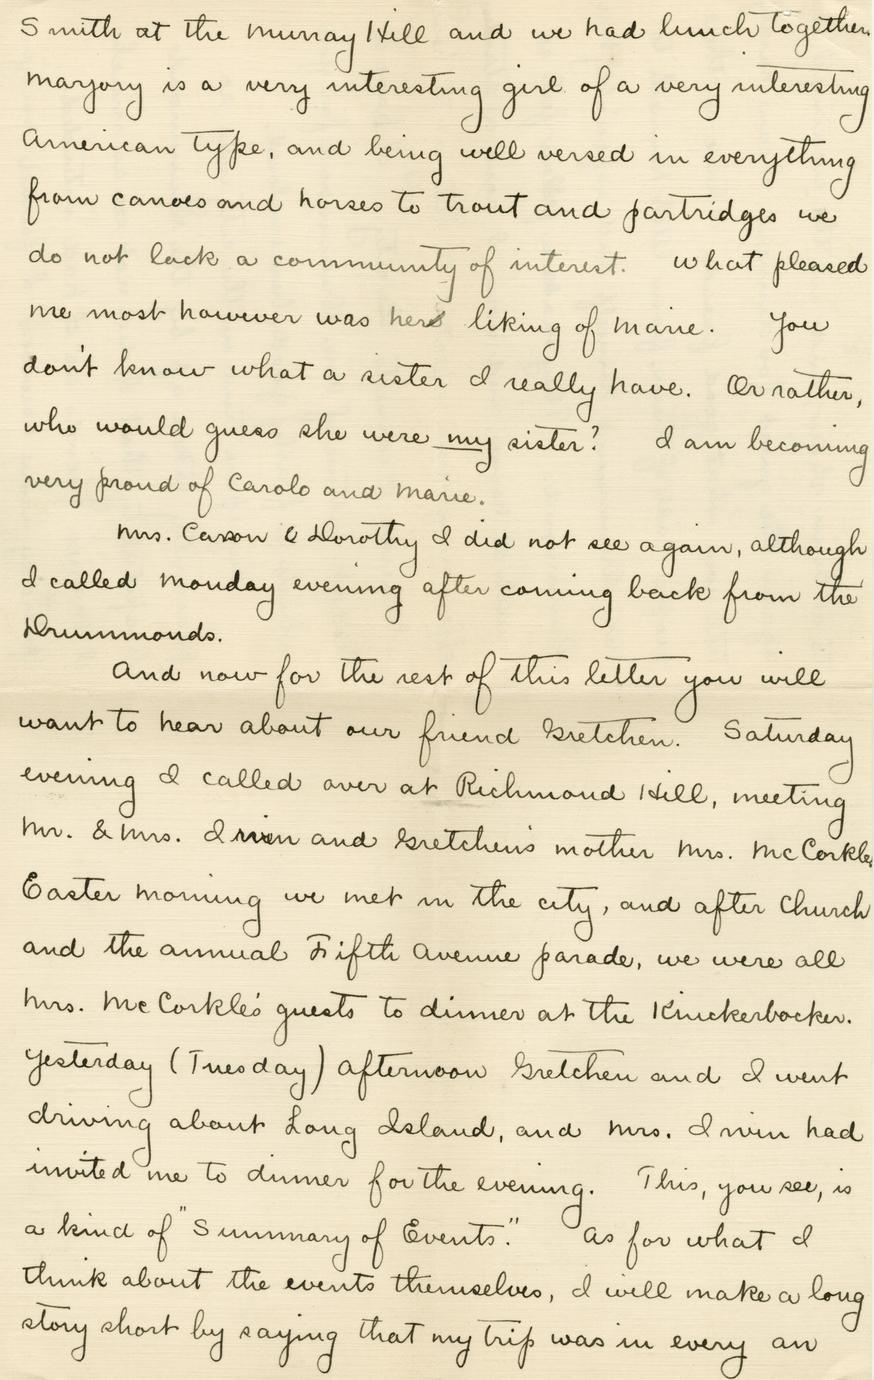 Smith at the Murray Hill and we had lunch together.
Marjory is a very interesting girl of a very interesting
American type, and being well versed in everything
from canoes and horses to trout and partridges we
do not lack a community of interest. What pleased
me most however was her liking of Marie. You
don't know what a sister I really have. Or rather,
who would guess she were my sister? I am becoming
very proud of Carolo and Marie.
Mrs. Caxon & Dorothy I did not see again, although
I called Monday evening after coming back from the
Drummonds.
And now for the rest of this letter you will
want to hear about our friend Gretchen. Saturday
evening I called over at Richmond Hill, meeting
Mr. & Mrs. Irwin and Gretchen's mother Mrs. McCorkle.
Easter morning we met in the city, and after Church
and the annual Fifth Avenue parade, we were all
Mrs. McCorkle's guests to dinner at the Knickerbocker.
Yesterday (Tuesday) afternoon Gretchen and I went
driving about Long Island, and Mrs. Irwin had
invited me to dinner for the evening. This, you see, is
a kind of "Summary of Events." As for what I
think about the events themselves, I will make a long
story short by saying that my trip was in every an